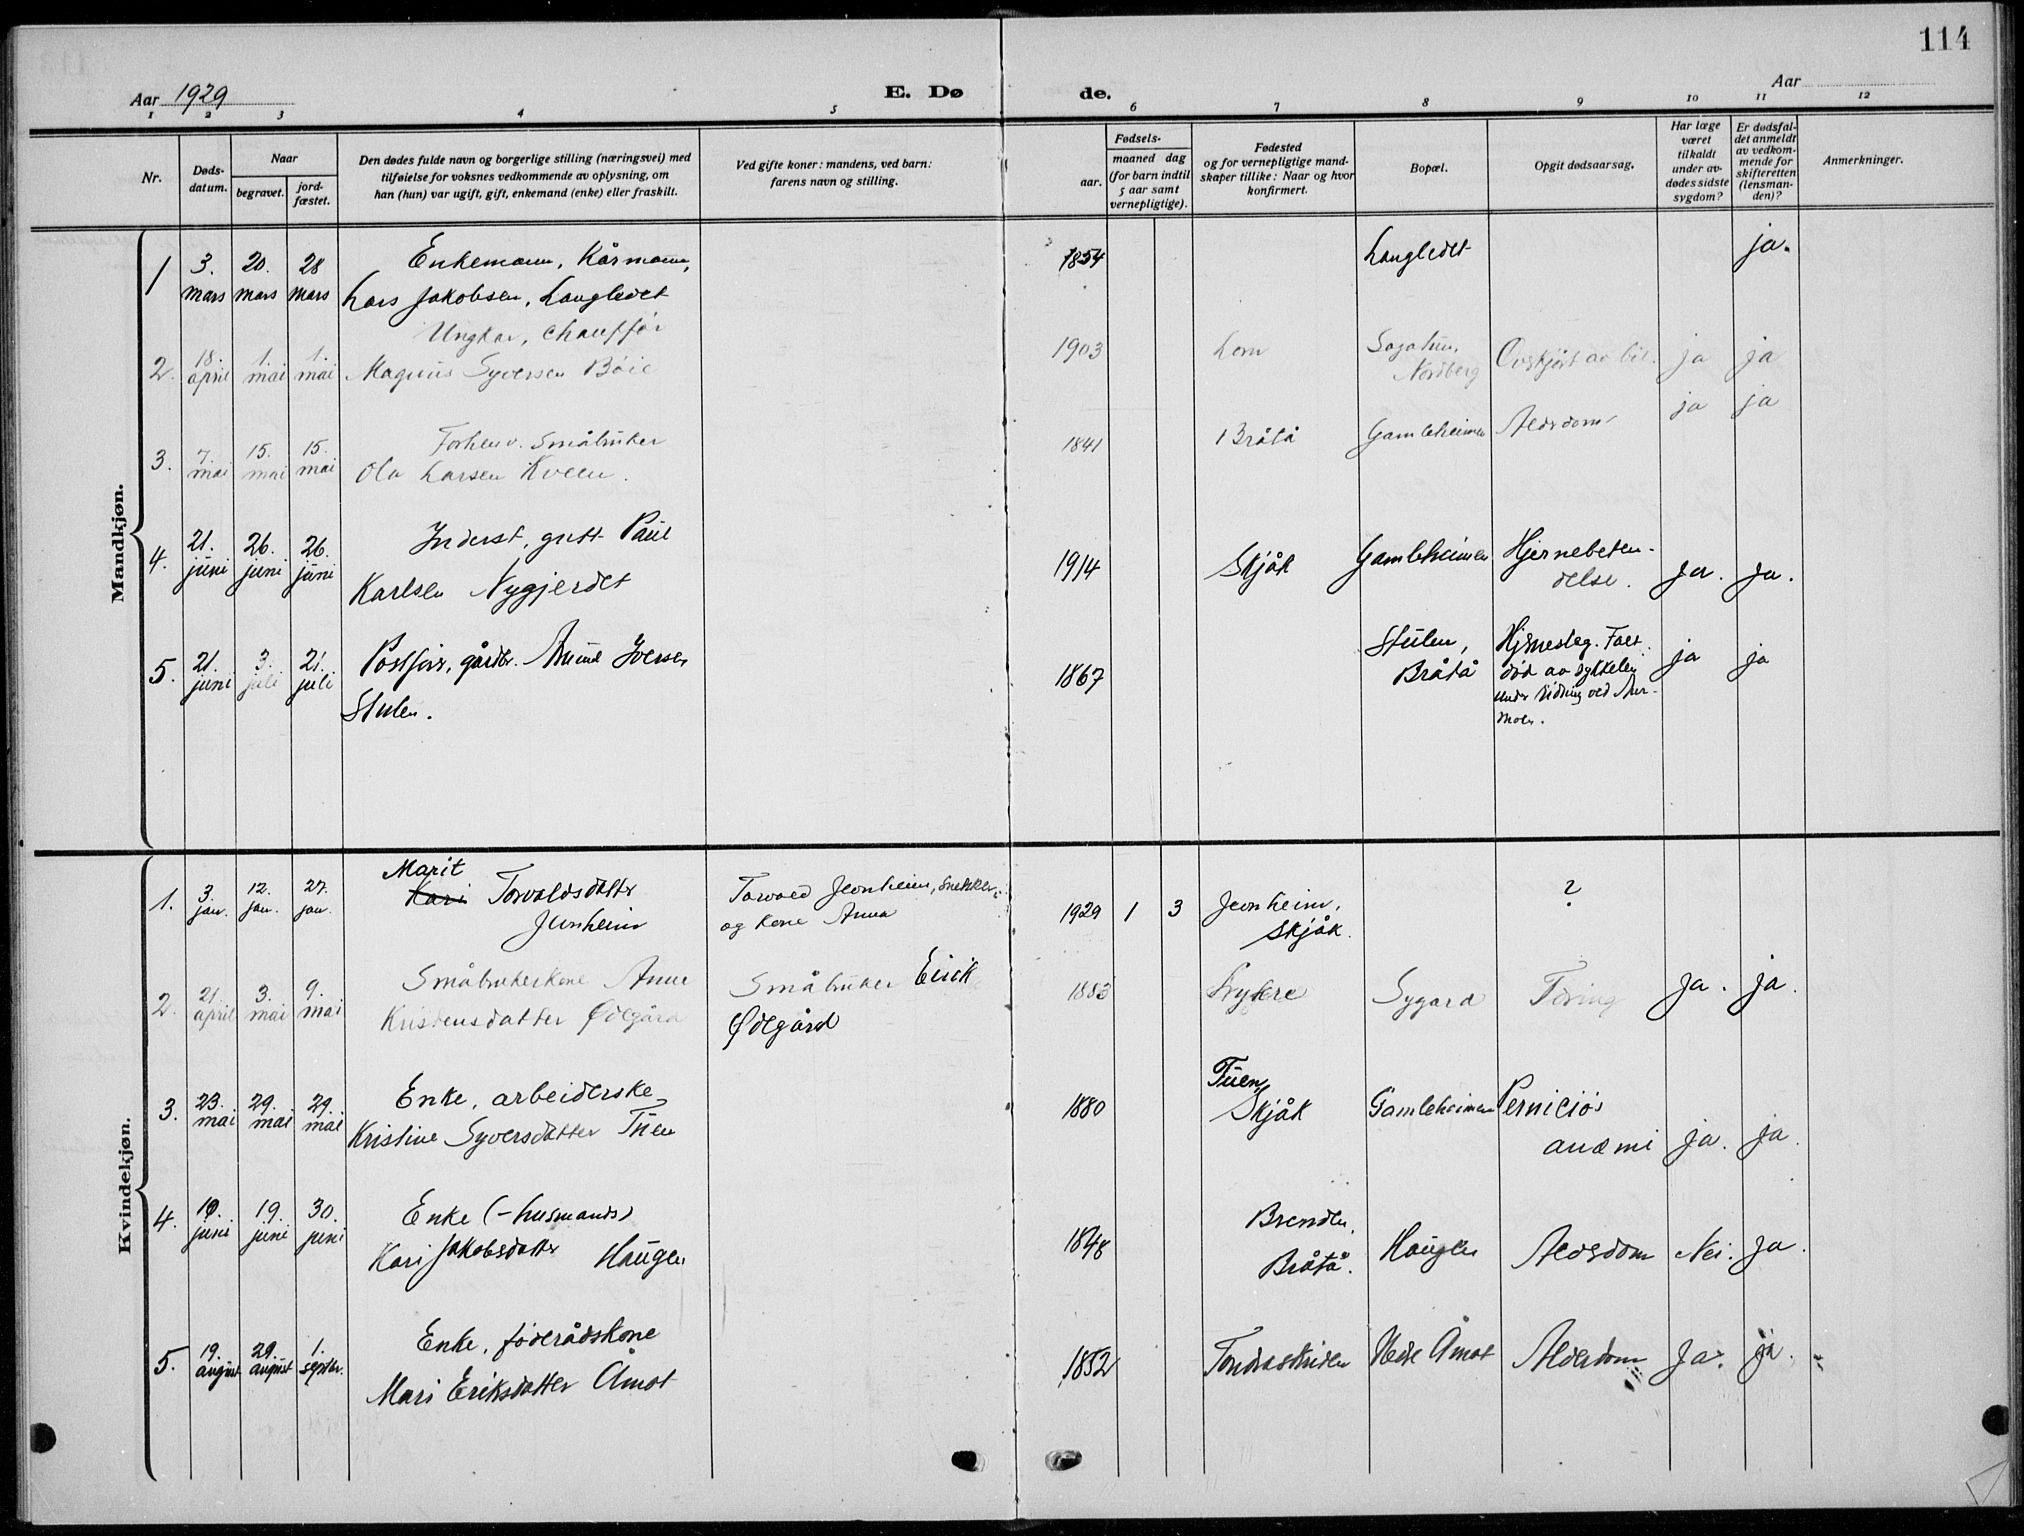 114
Aar 1929
E. Dø
de.
Aar
1 2 3 4 5 6 7 8 9 10 11 12
Nr.
Døds-
datum.
Naar
begravet.
jord-
fæstet.
Den dødes fulde navn og borgerlige stilling (næringsvei) med
tilføielse for voksnes vedkommende av oplysning, om
han (hun) var ugift, gift, enkemand (enke) eller fraskilt.
Ved gifte koner: mandens, ved barn:
farens navn og stilling.
Fødsels-
aar.
maaned dag
(for barn indtil
5 aar samt
vernepligtige).
Fødested
og for vernepligtige mand-
skaper tillike: Naar og hvor
konfirmert.
Bopæl.
Opgit dødsaarsag.
Har læge
været
tilkaldt
under av-
dødes sidste
sygdom?
Er dødsfal-
det anmeldt
av vedkom-
mende for
skifteretten
(lensman-
den)?
Anmerkninger.
Mandkjøn.
1 3. 20. 28 Enkemann, Kårmann, 1854 Langledet ja.
mars mars mars Lars Jakobsen, Langledet
Ungkar, chauffør
2. 18. 1. 1. 1903 Lom Sagatun, Overkjørt av bil. ja ja
april mai mai Magnus Syversen Böie Nordberg
3. 7. 15. 15. Forhenv. Småbruker 1841 Bråtå Gamleheimen Aldsdom ja ja
mai mai mai Ola Larsen Kveen.
4. 21. 26. 26. Inderst, gutt Paul 1914 Skjåk Gamleheimen Hjernebeten-
juni juni juni Karlsen Nygjerdet delse. ja. ja.
5. 21. 3. 21. Postfør, gårdbr. Amund Iversen 1867 Stulen, Hjerneslag. Falt
juni juli juli Stulen. Bråtå død av sykkelen ja ja
under ridning ved
moen.
Kvindekjøn.
Marit
1. 3. 12. 27. Kari Torvaldsdatter Torvald Jonheim, snekker, 1929 1 3 Jonheim, ?
jan. jan. jan. Jonheim og kone Anna Skjåk.
2. 21. 3. 9. Småbrukerkone Anne Småbruker Eirik 1883 Sygard Tæring ja. ja.
april mai mai Kristensdatter Ødegård Ødegård
3. 23. 29. 29. Enke, arbeiderske 1880 Tuen, Skjåk Gamleheimen Perniciøs
mai mai mai Kristine Syversdatter Tuen anæmi ja. ja.
4. 10. 19. 30. Enke (-husmands) 1848 Brenden, Haugen Aldsdom Nei. ja.
juni juni juni Kari Jakobsdatter Haugen Bråtå.
5. 19. 29. 1. Enke, føderådskone 1852 Nedr Åmot Alderdom Ja. ja.
august august septbr. Mari Eriksdatter Åmot